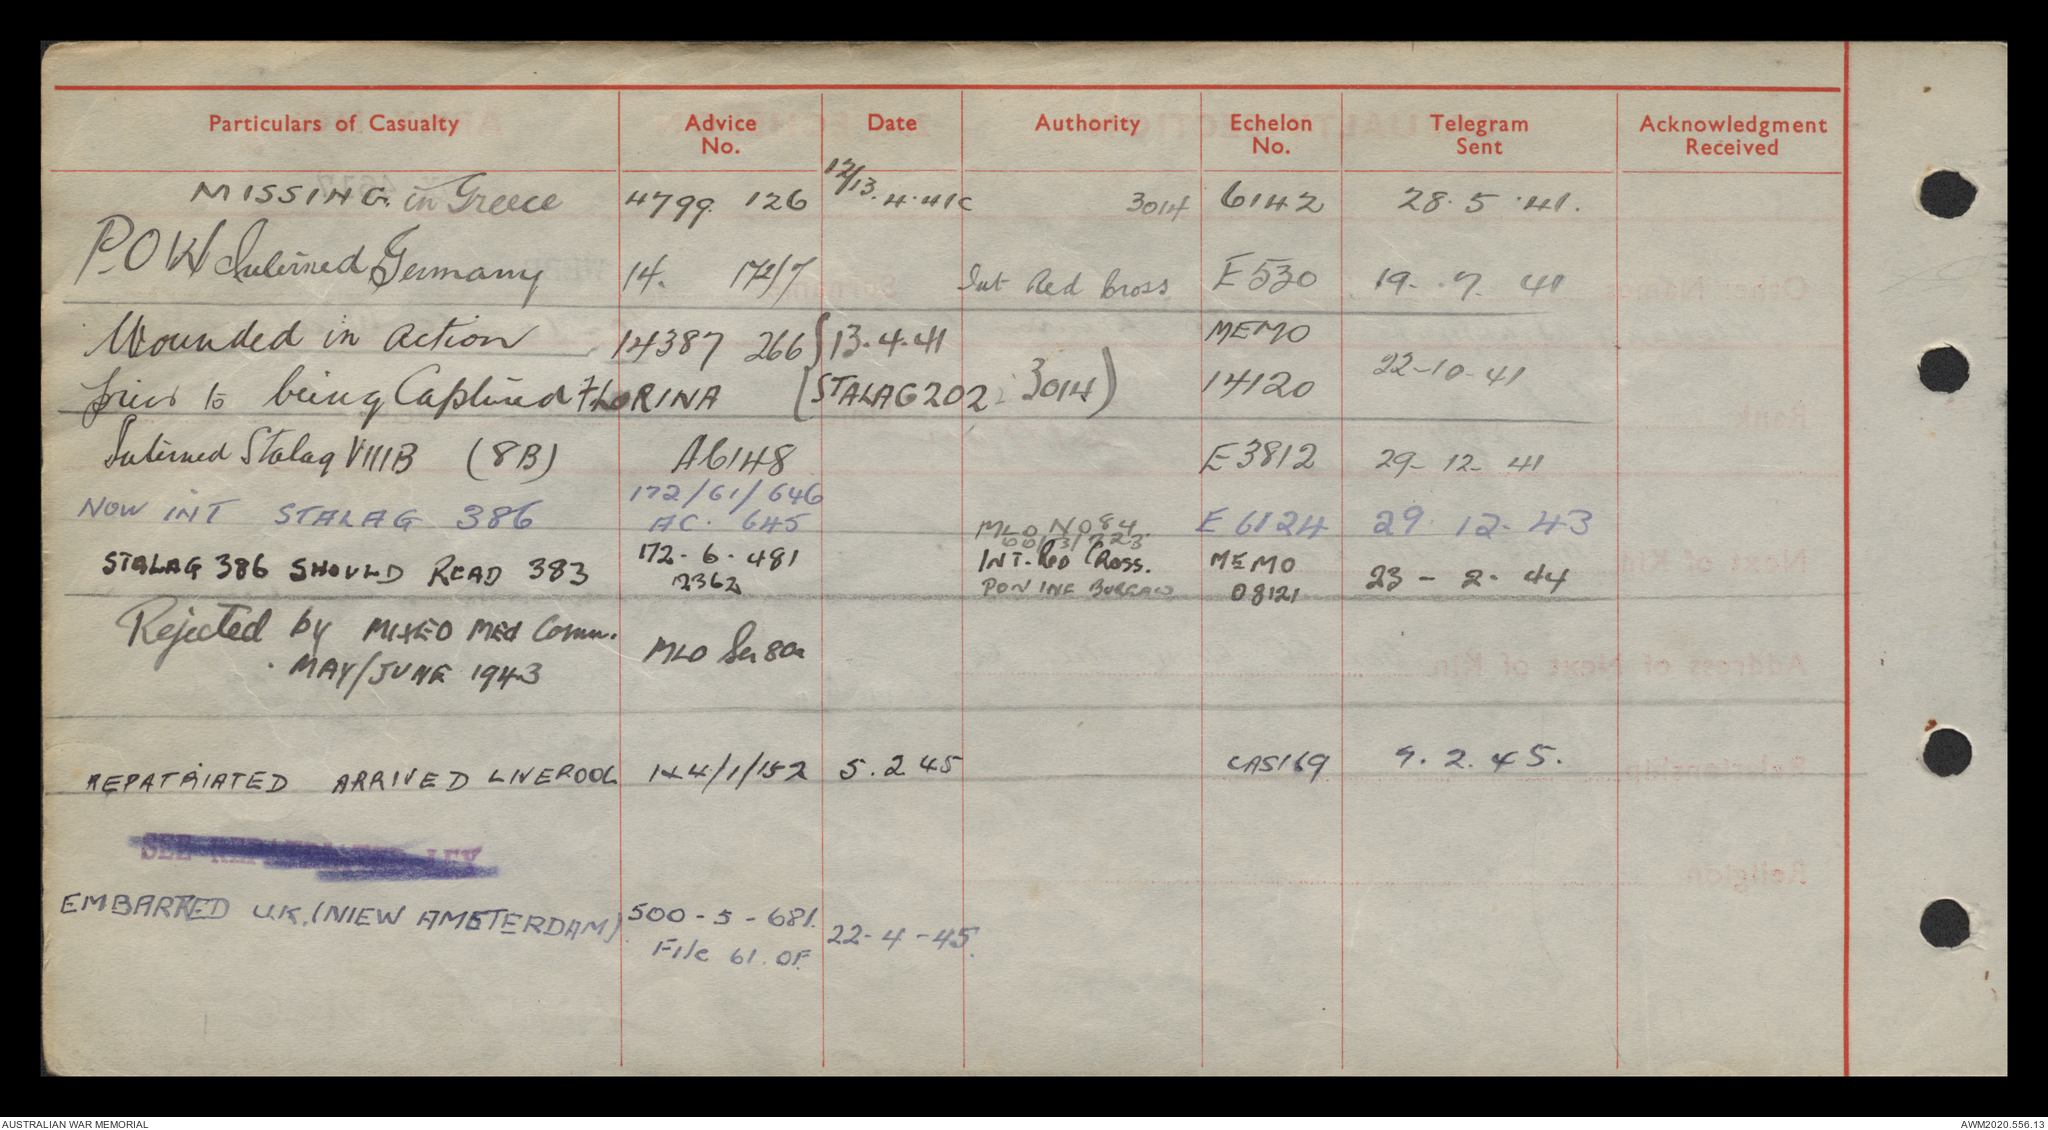 Particulars of Casualty Advice No. Date Authority Echelon No. Telegram Sent Acknowledgment Received
MISSING in Greece 4799 126 12/13.4.41 3014 6142 28.5.41.
P.O.W Interned Germany 14. 172/7 Int Red Cross E530 19.7.41
Wounded in action 14387 266 (13.4.41 MEMO
prior to being Captured FLORINA (STALAG 202 3014) 14120 22-10-41
Interned Stalag VIIIB (8B) A6148 E3812 29-12-41
172/61/646
NOW INT STALAG 386 AC. 645 MLO NO 84 E6124 29.12.43
STALAG 386 SHOULD READ 383 172-6-481 INT. RED CROSS. MEMO
2362 POW INF BUREAU 08121 23-2-44
Rejected by MIXED MED Comm. MLO Ser 80a
MAY/JUNE 1943
REPATRIATED ARRIVED LIVERPOOL 144/1/152 5.2.45 CAS169 9.2.45.
SEE REPATRIATED
EMBARKED U.K. (NIEW AMSTERDAM) 500-5-681. 22-4-45.
File 61. OF.
AUSTRALIAN WAR MEMORIAL AWM2020.556.13